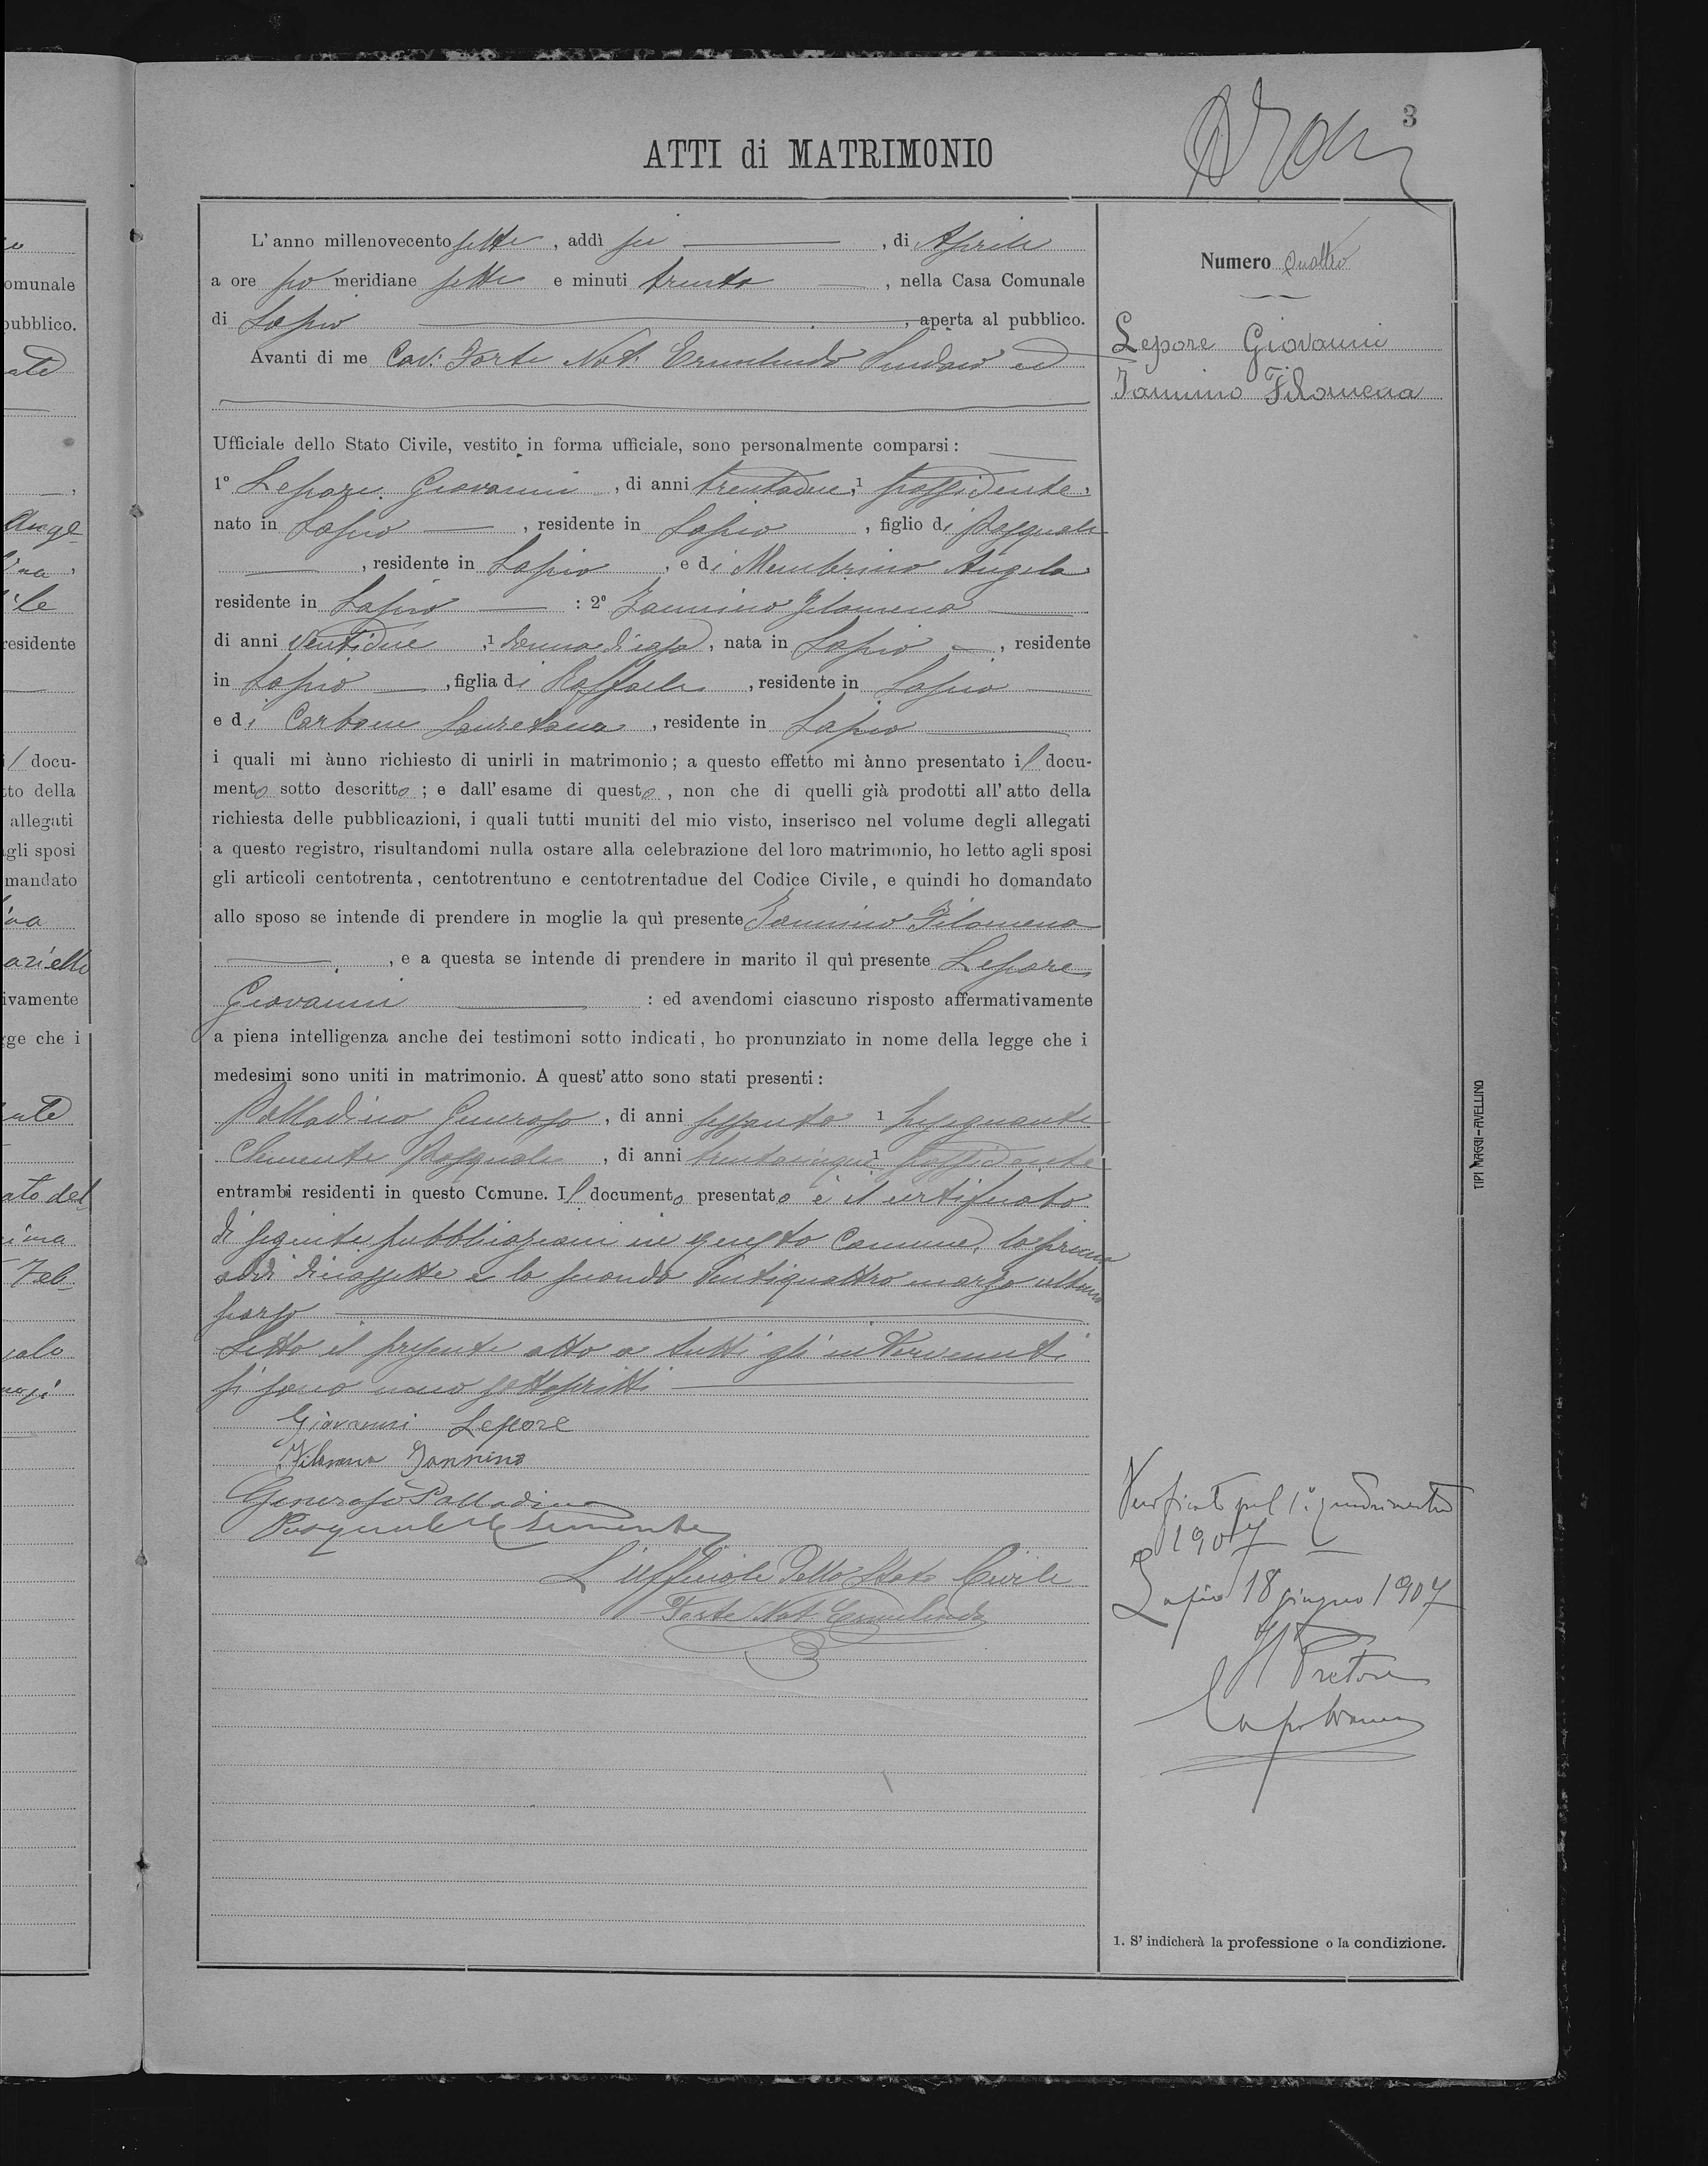 3
ATTI di MATRIMONIO
L'anno millenovecento sette, addì sei, di Aprile
a ore po meridiane sette e minuti trenta, nella Casa Comunale
di Lapio, aperta al pubblico.
Avanti di me Cav: Forte Not. Ermelindo Sindaco ed
Ufficiale dello Stato Civile, vestito in forma ufficiale, sono personalmente comparsi:
1° Lepore Giovanni, di anni trentadue, 1 possidente,
nato in Lapio, residente in Lapio, figlio di Pasquale
, residente in Lapio, e di Membrino Angela
residente in Lapio : 2° Iannino Filomena
di anni ventidue, 1 donna di casa, nata in Lapio, residente
in Lapio, figlia di Raffaele, residente in Lapio
e di Carbone Lauretana, residente in Lapio
i quali mi ànno richiesto di unirli in matrimonio; a questo effetto mi ànno presentato il docu-
mento sotto descritto; e dall'esame di questo, non che di quelli già prodotti all'atto della
richiesta delle pubblicazioni, i quali tutti muniti del mio visto, inserisco nel volume degli allegati
a questo registro, risultandomi nulla ostare alla celebrazione del loro matrimonio, ho letto agli sposi
gli articoli centotrenta, centotrentuno e centotrentadue del Codice Civile, e quindi ho domandato
allo sposo se intende di prendere in moglie la quì presente Iannino Filomena
, e a questa se intende di prendere in marito il quì presente Lepore
Giovanni : ed avendomi ciascuno risposto affermativamente
a piena intelligenza anche dei testimoni sotto indicati, ho pronunziato in nome della legge che i
medesimi sono uniti in matrimonio. A quest'atto sono stati presenti:
Palladino Generoso, di anni sessanta 1 Insegnante
Clemente Pasquale, di anni trentacinque 1 possidente
entrambi residenti in questo Comune. Il documento presentato è il certificato
di seguite pubblicazioni in questo Comune, la prima
addì diciassette e la seconda ventiquattro marzo ultimo
scorso
Letto il presente atto a tutti gli intervenuti
si sono meco sottoscritti
Giovanni Lepore
Filomena Iannino
Generoso Palladino
Pasquale Clemente
L'Ufficiale dello Stato Civile
Forte Not. Ermelindo
Numero quattro
Lepore Giovanni
Iannino Filomena
Verificato pel 1° quadrimestre
1907
Lapio 18 giugno 1907
Il Pretore
1. S' indicherà la professione o la condizione.
TIPI MAGGI-AVELLINO